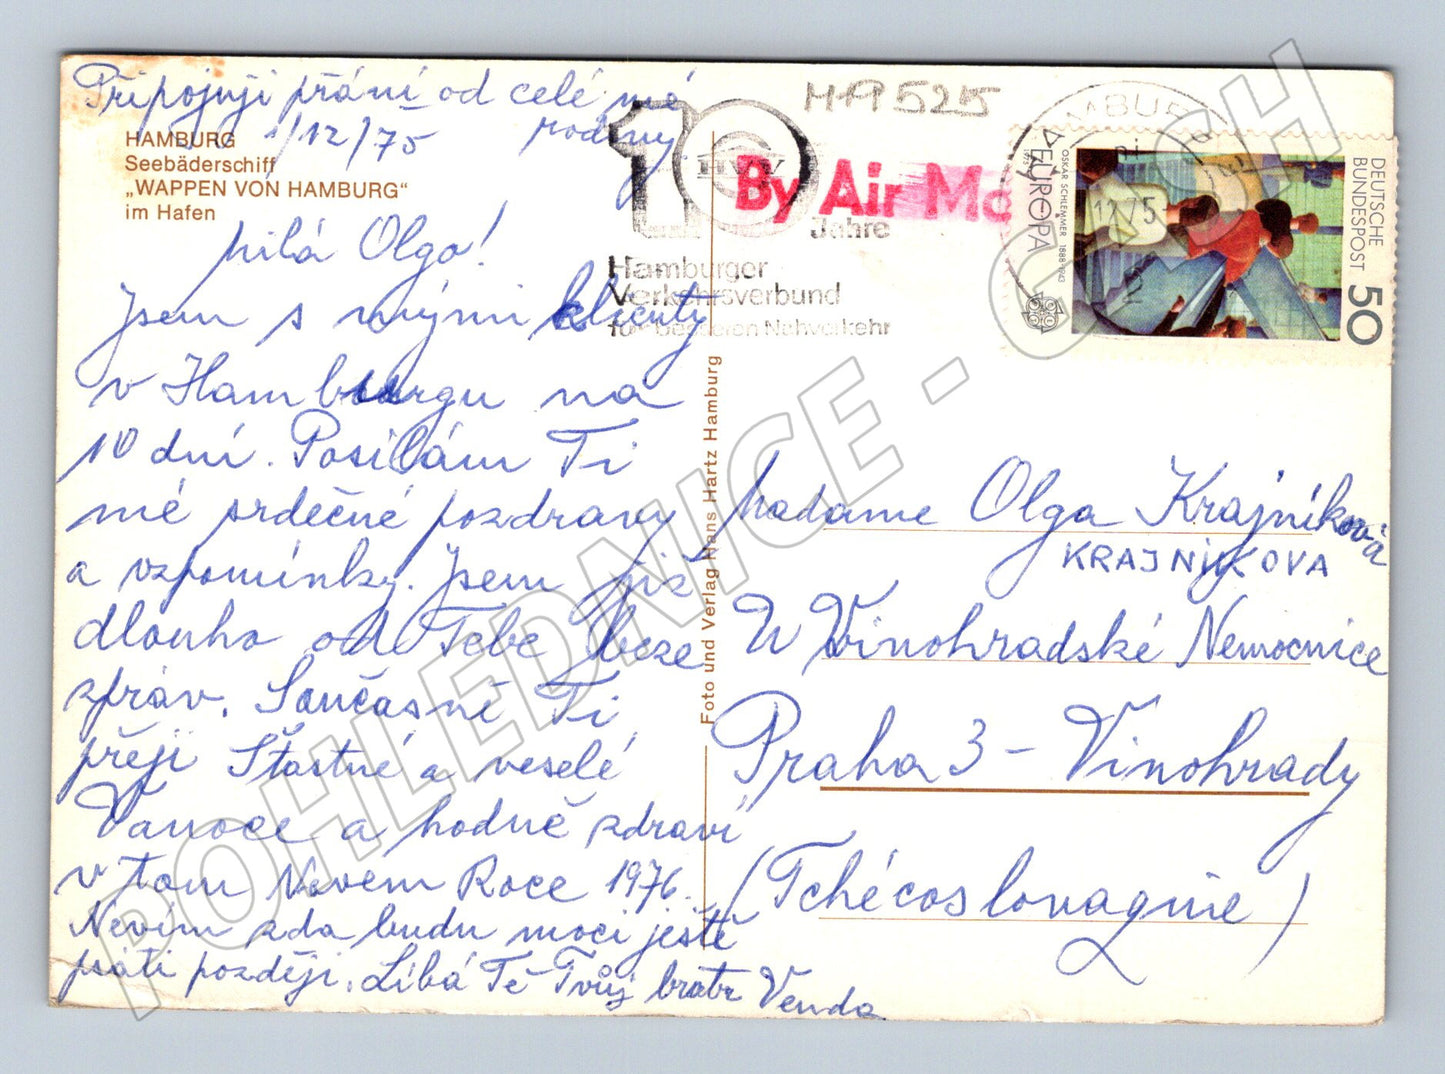 Připojuji přání od celé mé
1/12/75 rodiny.
HAMBURG
Seebäderschiff
„WAPPEN VON HAMBURG"
im Hafen
Milá Olgo!
Jsem s mými klienty
v Hamburgu na
10 dní. Posílám Ti
mé srdečné pozdravy
a vzpomínky. Jsem již
dlouho od Tebe beze
zpráv. Současně Ti
přeji Šťastné a veselé
Vanoce a hodně zdraví
v tom Novém Roce 1976.
Nevím zda budu moci ještě
psáti později. Líbá Tě Tvůj bratr Venda
Foto und Verlag Hans Hartz Hamburg
MA525
10
HVV
Jahre
Hamburger
Verkehrsverbund
für besseren Nahverkehr
By Air Ma
HAMBURG
12.75
2
DEUTSCHE
BUNDESPOST
50
OSKAR SCHLEMMER 1888-1943
EUROPA
Madame Olga Krajníková
KRAJNIKOVA
U Vinohradské Nemocnice
Praha 3 - Vinohrady
(Tchécoslovaquie)
POHLEDNICE - GASH